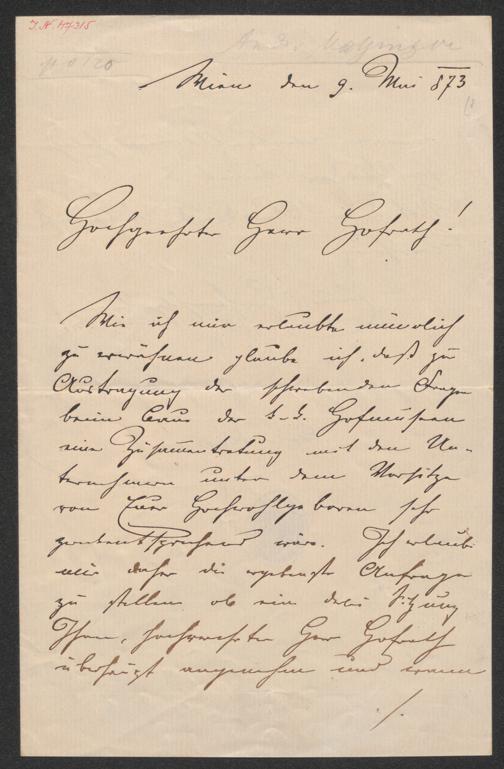 I.N. 47315
Wien den 9. Mai 873
Hochgeehrter Herr Hofrath!
Wie ich mir erlaubte mündlich
zu erwähnen glaube ich, daß zu
Austragung der schwebenden Fragen
beim Baue der k. k. Hofmuseen
eine Zusammentretung mit den Un-
ternehmern unter dem Vorsitze
von Euer Hochwohlgeboren sehr
zweckentsprechend wäre. Ich erlaube
mir daher die ergebenste Anfrage
zu stellen ob eine Sitzung
Ihnen, hochverehrter Herr Hofrath
überhaupt angenehm und wann
./.